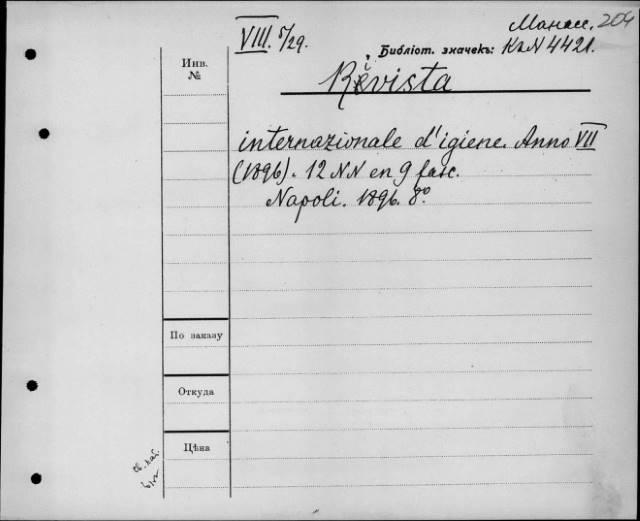 VIII. 5/29.
Манасс. 204
Библіот. значекъ: Кв N 4421.
Инв.
№
Rivista
internazionale d'igiene. Anno VII
(1896). 12 NN en 9 fasc.
Napoli. 1896. 8º
По заказу
Откуда
Цѣна